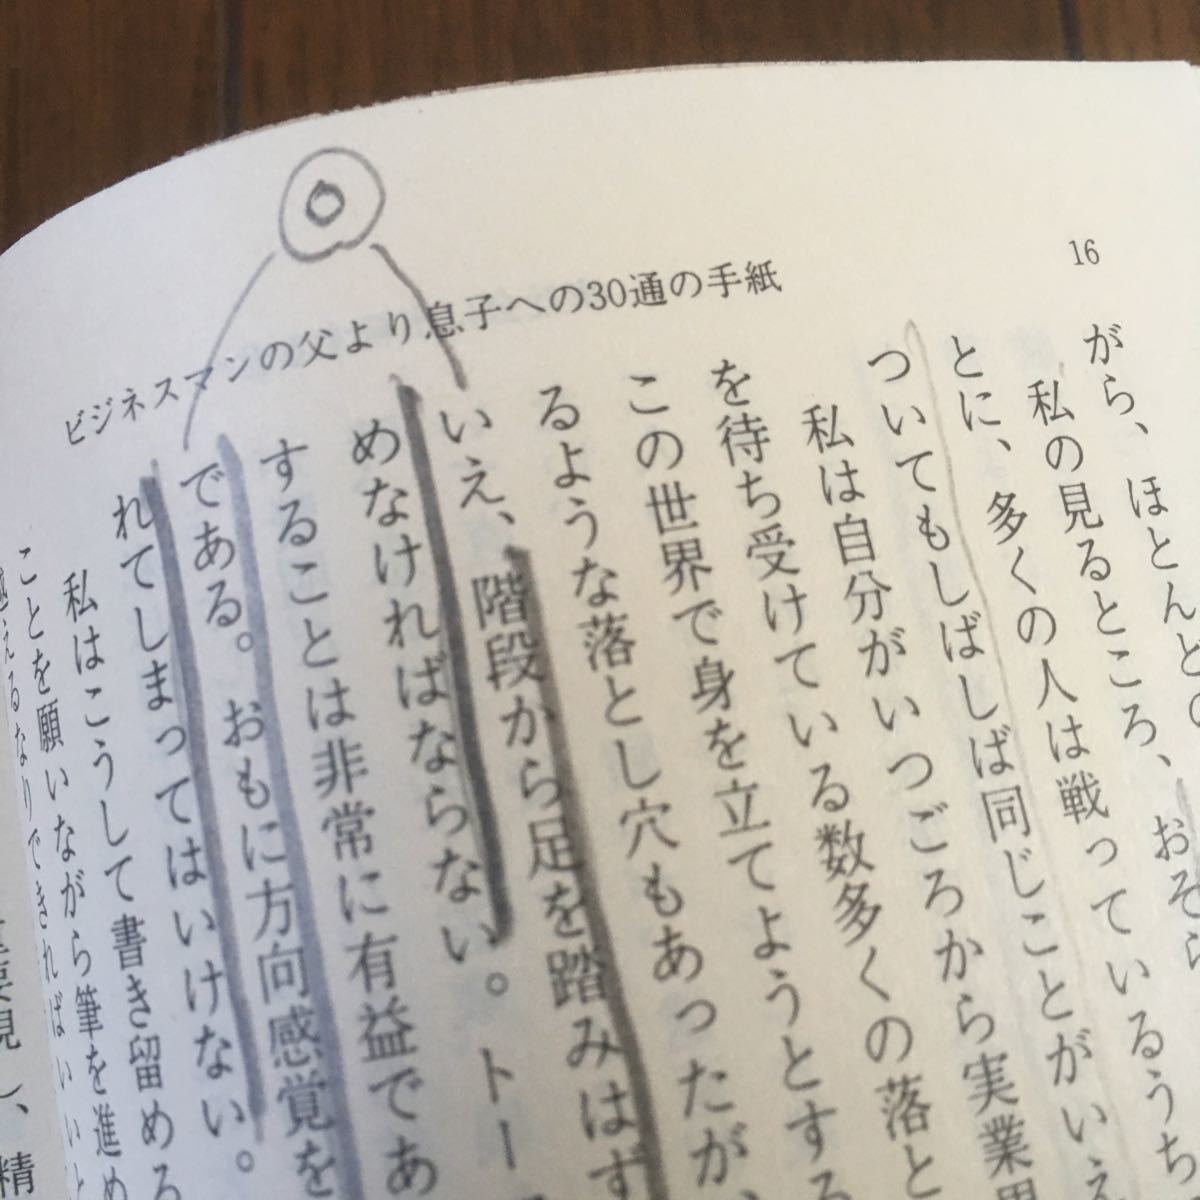 16
ビジネスマンの父より息子への30通の手紙
がら、ほとんど
私の見るところ、おそら
とに、多くの人は戦っているうち
ついてもしばしば同じことがいえ
私は自分がいつごろから実業
を待ち受けている数多くの落と
この世界で身を立てようとする
るような落とし穴もあったが、
いえ、階段から足を踏みはず
めなければならない。トー
することは非常に有益であ
である。おもに方向感覚を
れてしまってはいけない。
私はこうして書き留める
ことを願いながら筆を進め
越えるなりできればいいと